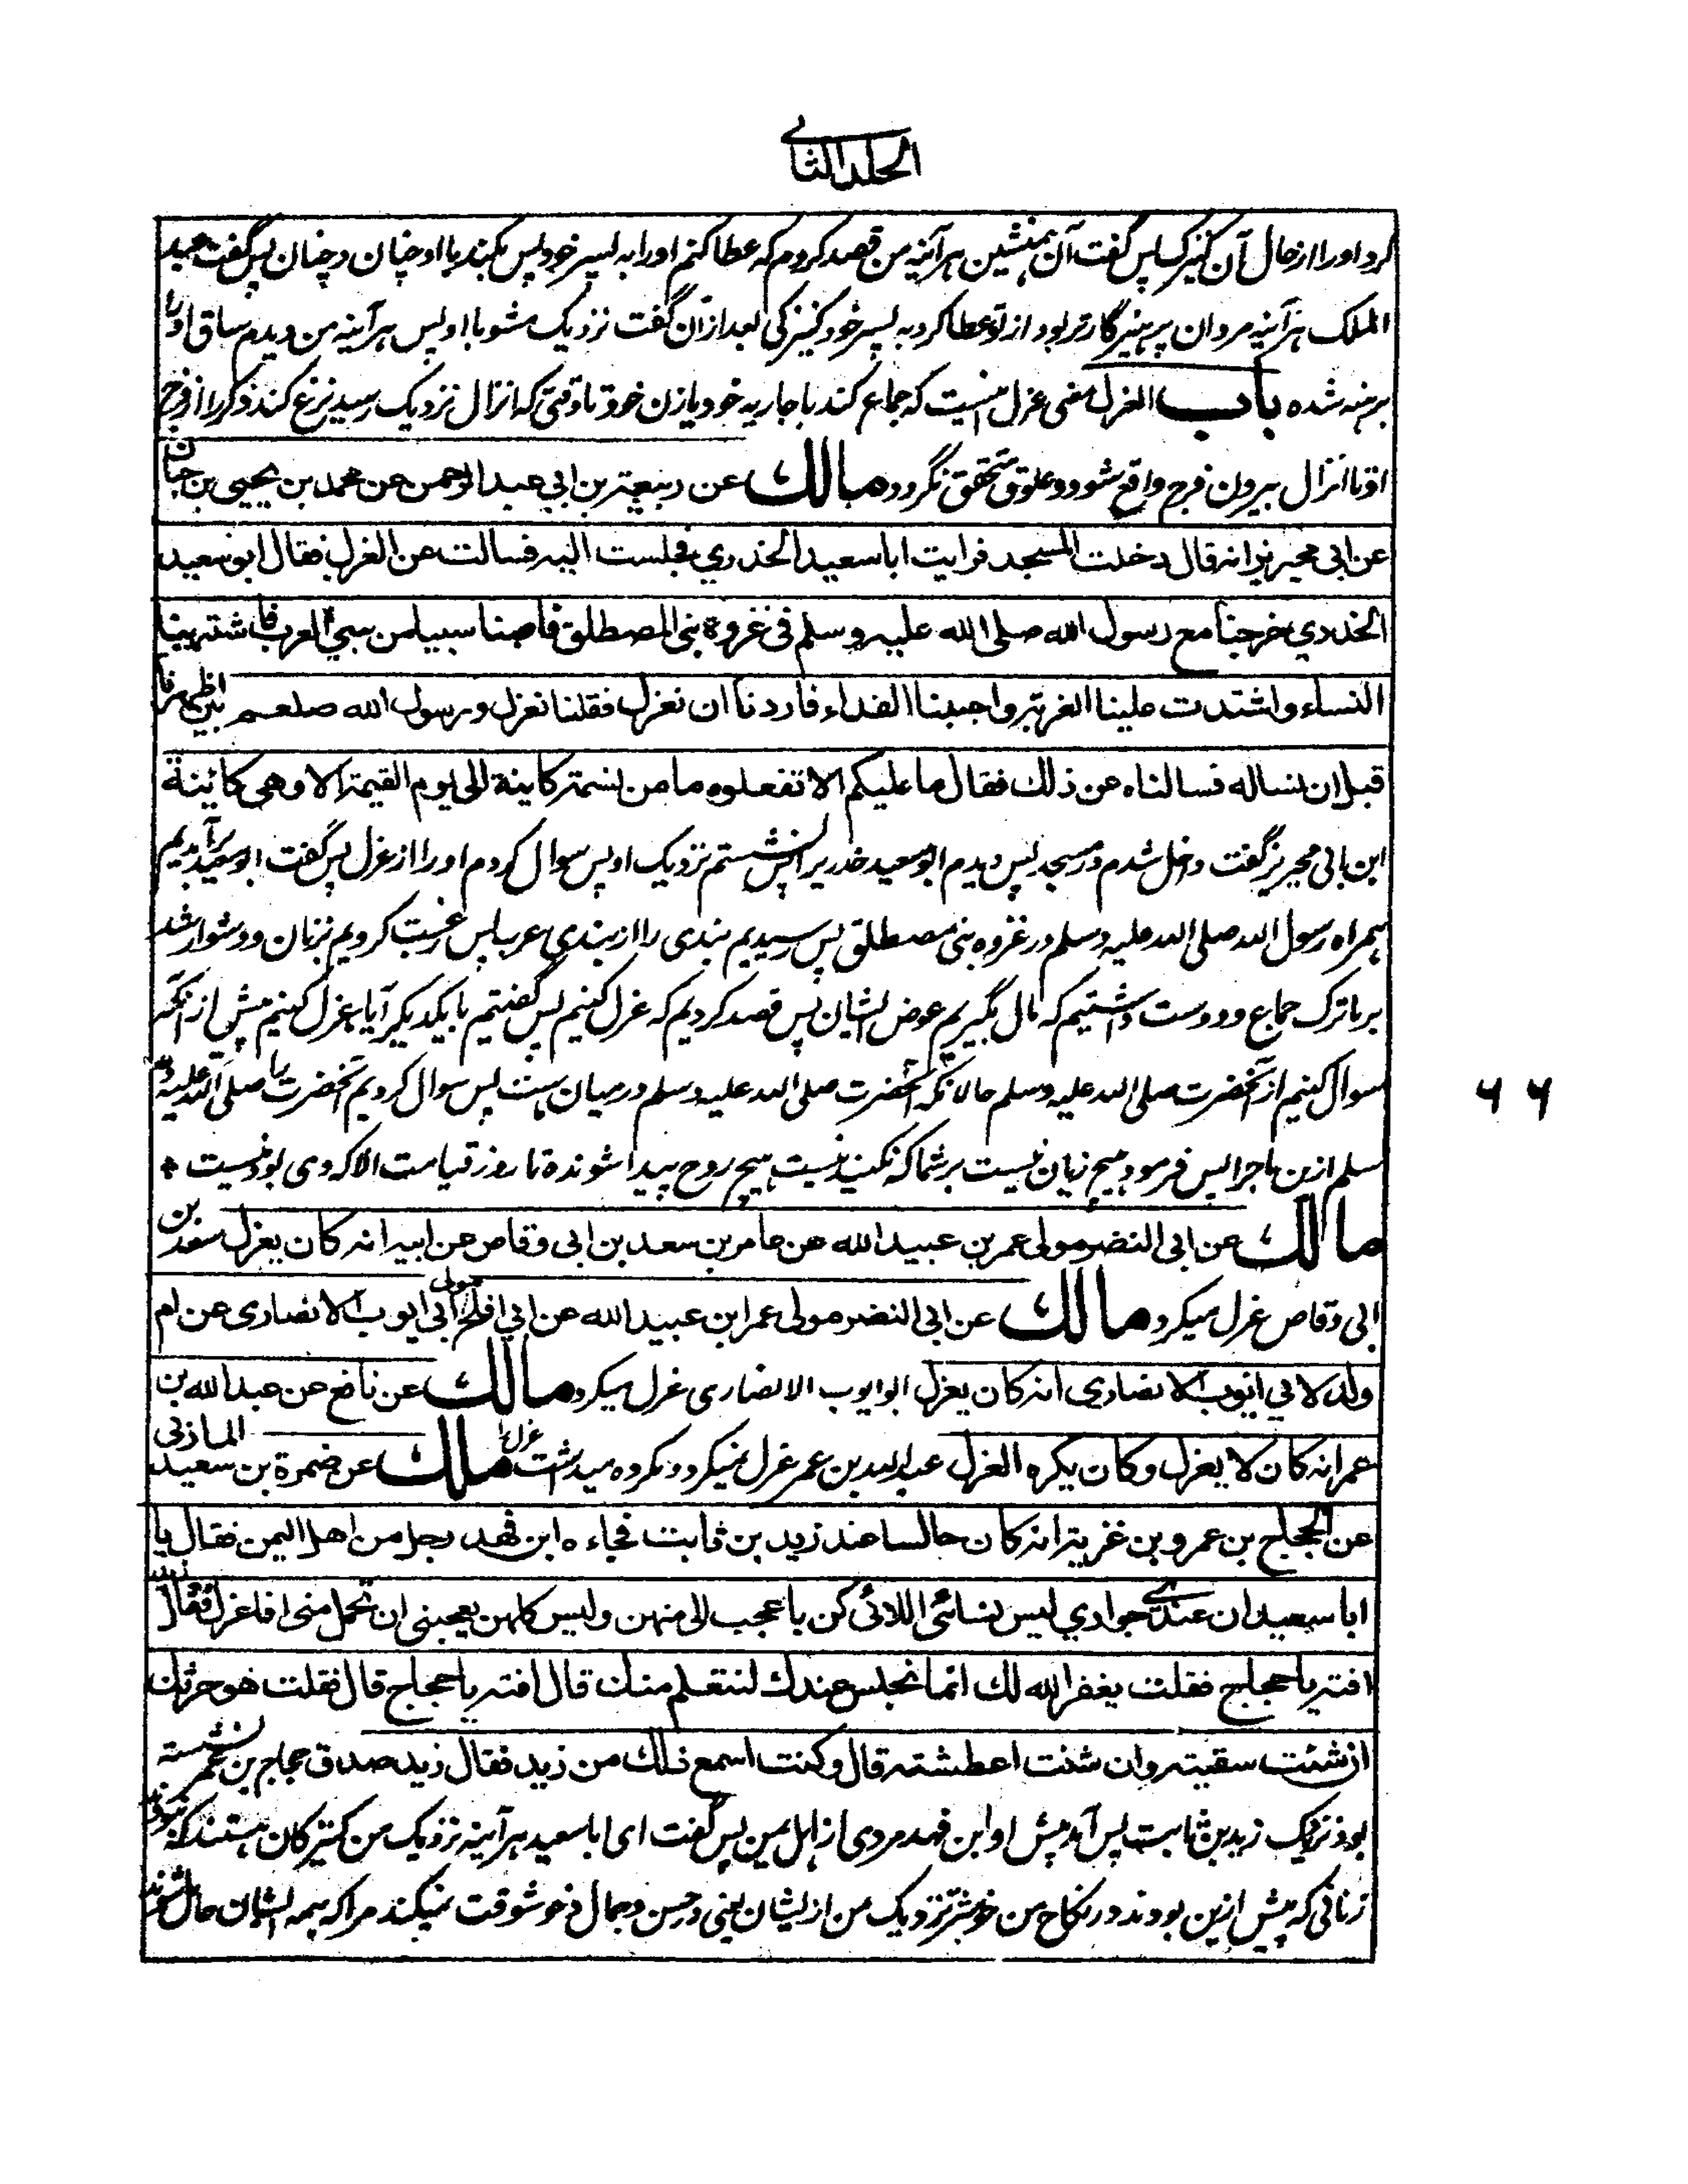 الجلد الثانی
کرد او را از حال آن کنیزک پس گفت آن همنشین هرآئینه من قصد کردم که عطا کنم او را به پسر خود پس بکند با او چنان و چنان پس گفت عبد
الملک هرآئینه مروان پرهیزگارتر بود از تو عطا کرد به پسر خود کنیزکی بعد ازان گفت نزدیک مشو با او پس هرآئینه من دیدم ساق او را
برهنه شده باب العزل معنی عزل اینست که جماع کند با جاریه خود یا زن خود تا وقتی که انزال نزدیک رسید نزع کند ذکر را از فرج
او تا انزال بیرون فرج واقع شود و علوق متحقق نگردد مالك عن ربیعة بن ابي عبد الرحمن عن محمد بن یحیی بن حبان
عن ابی محیریز انه قال دخلت المسجد فرایت ابا سعید الخدري فجلست الیه فسالت عن العزل فقال ابو سعید
الخدري خرجنا مع رسول الله صلی الله علیه وسلم فی غزوة بنی المصطلق فاصبنا سبیا من سبی العرب فاشتهینا
النساء واشتدت علینا العزبة واحببنا الفداء فاردنا ان نعزل فقلنا نعزل ورسول الله صلعم بین اظهرنا
قبل ان نساله فسالناه عن ذلك فقال ما علیکم الا تفعلوه ما من نسمة کاینة الی یوم القیمة الا وهی کائینة
ابن بابی محیریز گفت داخل شدم در مسجد پس دیدم ابو سعید خدری را پس نشستم نزدیک او پس سوال کردم او را از عزل پس گفت ابو سعید برآمدیم
همراه رسول الله صلی الله علیه وسلم در غزوه بنی مصطلق پس رسیدیم بندی را از بندی عرب پس رغبت کردیم بزنان و دشوار شد
بر ما ترک جماع و دوست داشتیم که مال بگیریم عوض ایشان پس قصد کردیم که عزل کنیم پس گفتیم با یکدیگر آیا عزل کنیم پیش از آنکه
سوال کنیم از آنحضرت صلی الله علیه وسلم حالانکه آنحضرت صلی الله علیه وسلم درمیان ماست پس سوال کردیم آنحضرت را صلی الله علیه و
سلم ازین ماجرا پس فرمود هیچ زیان نیست بر شما که نکنید نیست هیچ روح پیدا شونده تا روز قیامت الا که وی بودنیست *
۶۶
مالك عن ابی النضر مولی عمر بن عبید الله عن عامر بن سعد بن ابی وقاص عن ابیه انه کان یعزل سعد بن
ابی وقاص عزل میکرد مالك عن ابی النضر مولی عمر ابن عبید الله عن ابي افلح مولی ابی ایوب الانصاری عن ام
ولد لابي ایوب الانصاري انه کان یعزل ابو ایوب الانصاری عزل میکرد مالك عن نافع عن عبد الله بن
عمر انه کان لا یعزل وکان یکره العزل عبد الله بن عمر عزل نمیکرد و مکروه میداشت عزل مالك عن ضمرة بن سعید المازنی
عن الحجاج بن عمرو بن غزیة انه کان جالسا عند زید بن ثابت فجاءه ابن فهد رجل من اهل الیمن فقال یا
ابا سعید ان عندی جواري لیس نسائی اللائی کن باعجب الی منهن ولیس کلهن یعجبنی ان تحمل منی افاعزل فقال زید
افته یا حجاج فقلت یغفر الله لك انما نجلس عندك لنتعلم منك قال افته یا حجاج قال فقلت هو حرثك
ان شئت سقیته وان شئت اعطشته قال وکنت اسمع ذلك من زید فقال زید صدق حجاج بن عمر نشسته
بود نزدیک زید بن ثابت پس آمد پیش او ابن فهد مردی از اهل یمن پس گفت ای ابا سعید هرآئینه نزدیک من کنیزکان هستند که نبودند
زنانی که پیش ازین بودند در نکاح من خوشتر نزدیک من از ایشان یعنی در حسن و جمال و خوشوقت نمیکند مرا که همه ایشان حامل شوند